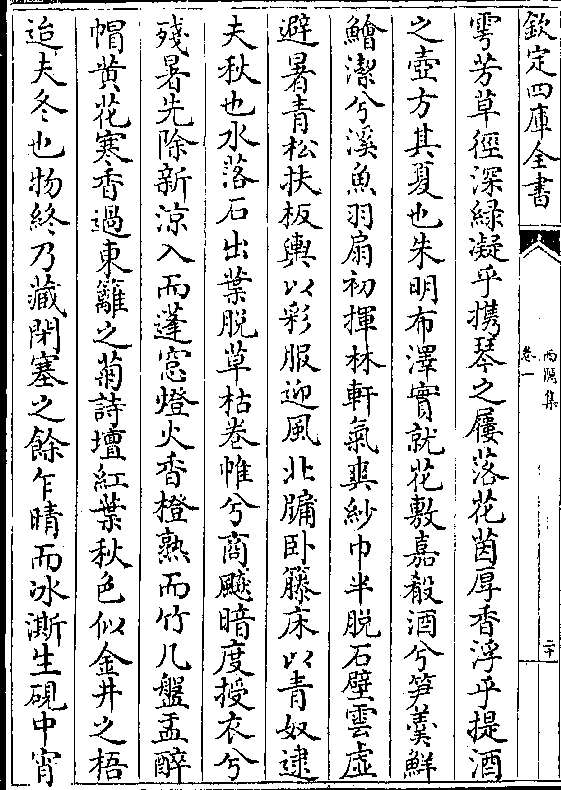 欽定四庫全書
西隱集
卷一
二十
雩芳草徑深緑凝乎携琴之屨落花茵厚香浮乎提酒
之壺方其夏也朱明布澤實就花敷嘉殽酒兮笋羮鮮
鱠潔兮溪魚羽扇初揮林軒氣爽紗巾半脱石壁雲虚
避暑青松扶板輿以彩服迎風北牗卧籐床以青奴逮
夫秋也水落石出葉脱草枯卷帷兮商飇暗度授衣兮
殘暑先除新凉入而蓬窓燈火香橙熟而竹几盤盂醉
帽黄花寒香過東籬之菊詩壇紅葉秋色似金井之梧
迨夫冬也物終乃藏閉塞之餘乍晴而冰澌生硯中宵